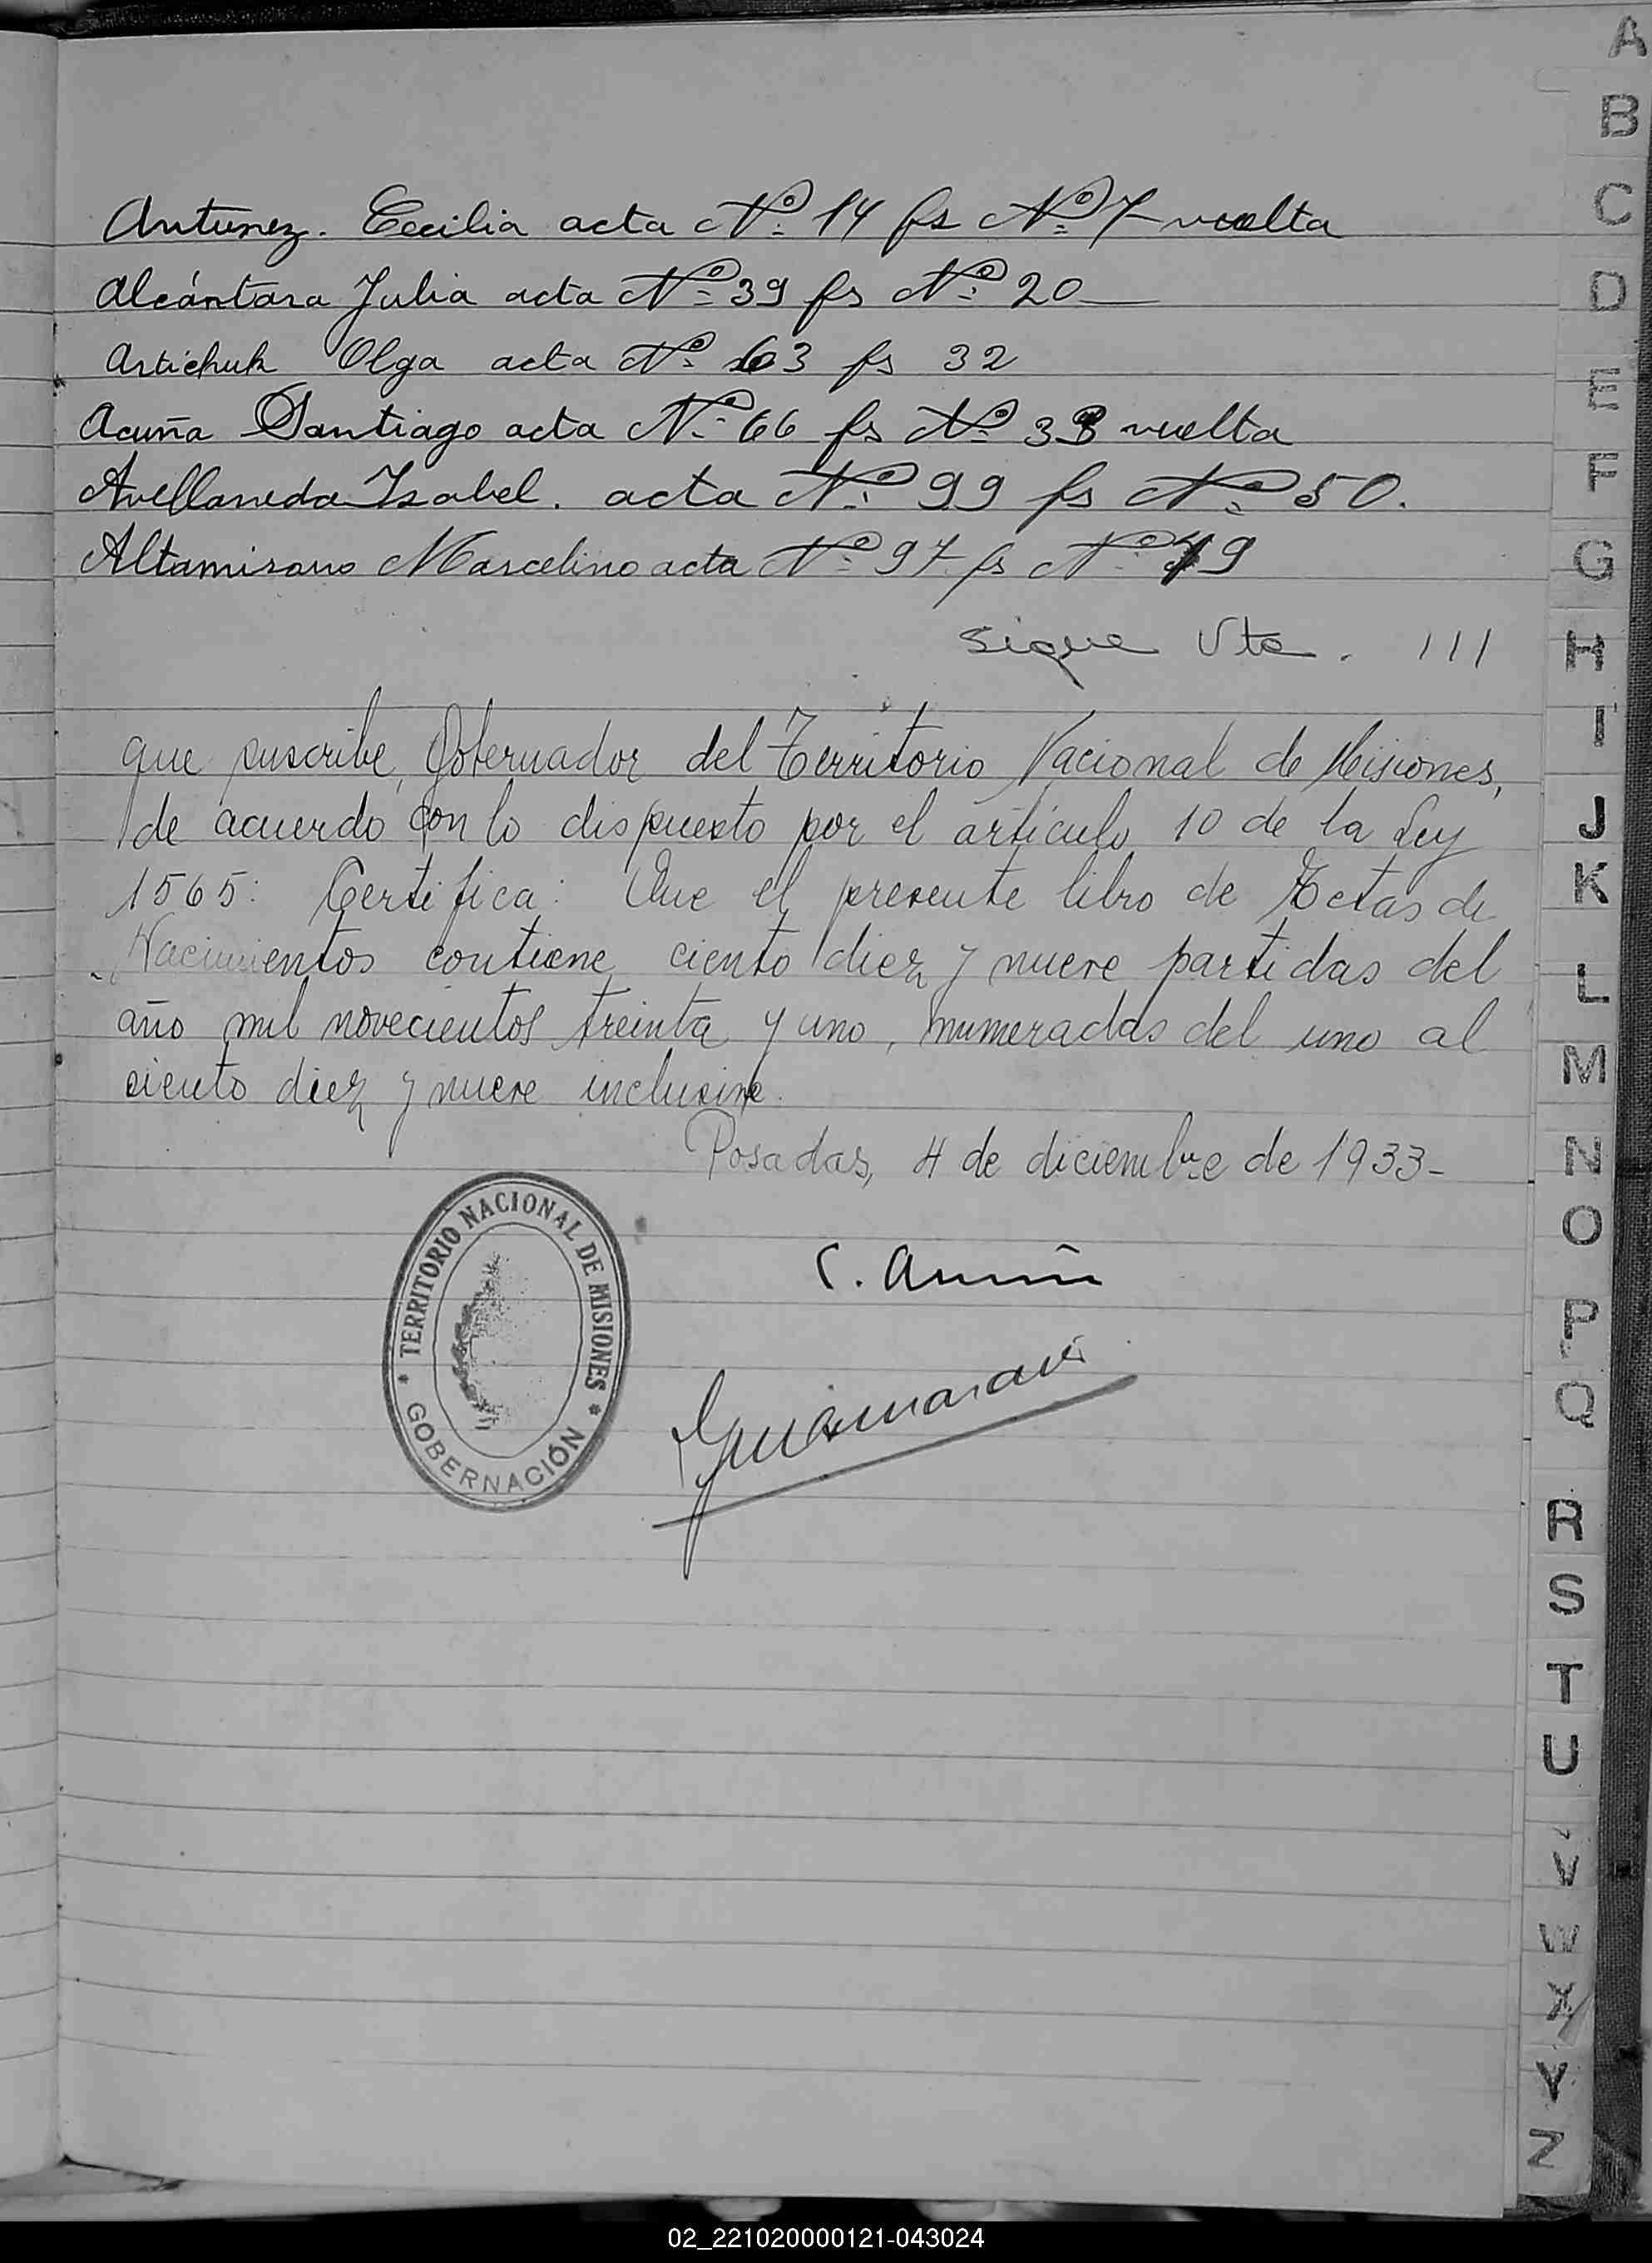 Antunez. Cecilia acta Nº 14 fs Nº 7 vuelta
Alcántara Julia acta Nº 39 fs Nº 20
Artichuk Olga acta Nº 63 fs 32
Acuña Santiago acta Nº 66 fs Nº 33 vuelta
Avellaneda Isabel. acta Nº 99 fs Nº 50.
Altamirano Marcelino acta Nº 97 fs Nº 49
Sigue Vta. ///
que suscribe, Gobernador del Territorio Nacional de Misiones,
de acuerdo con lo dispuesto por el artículo 10 de la Ley
1565: Certifica: Que el presente libro de Actas de
Nacimientos contiene ciento diez y nueve partidas del
año mil novecientos treinta y uno, numeradas del uno al
ciento diez y nueve inclusive.
Posadas, 4 de diciembre de 1933-
C.
TERRITORIO NACIONAL DE MISIONES
GOBERNACIÓN
A
B
C
D
E
F
G
H
I
J
K
L
M
N
O
P
Q
R
S
T
U
V
W
X
Y
Z
02_221020000121-043024